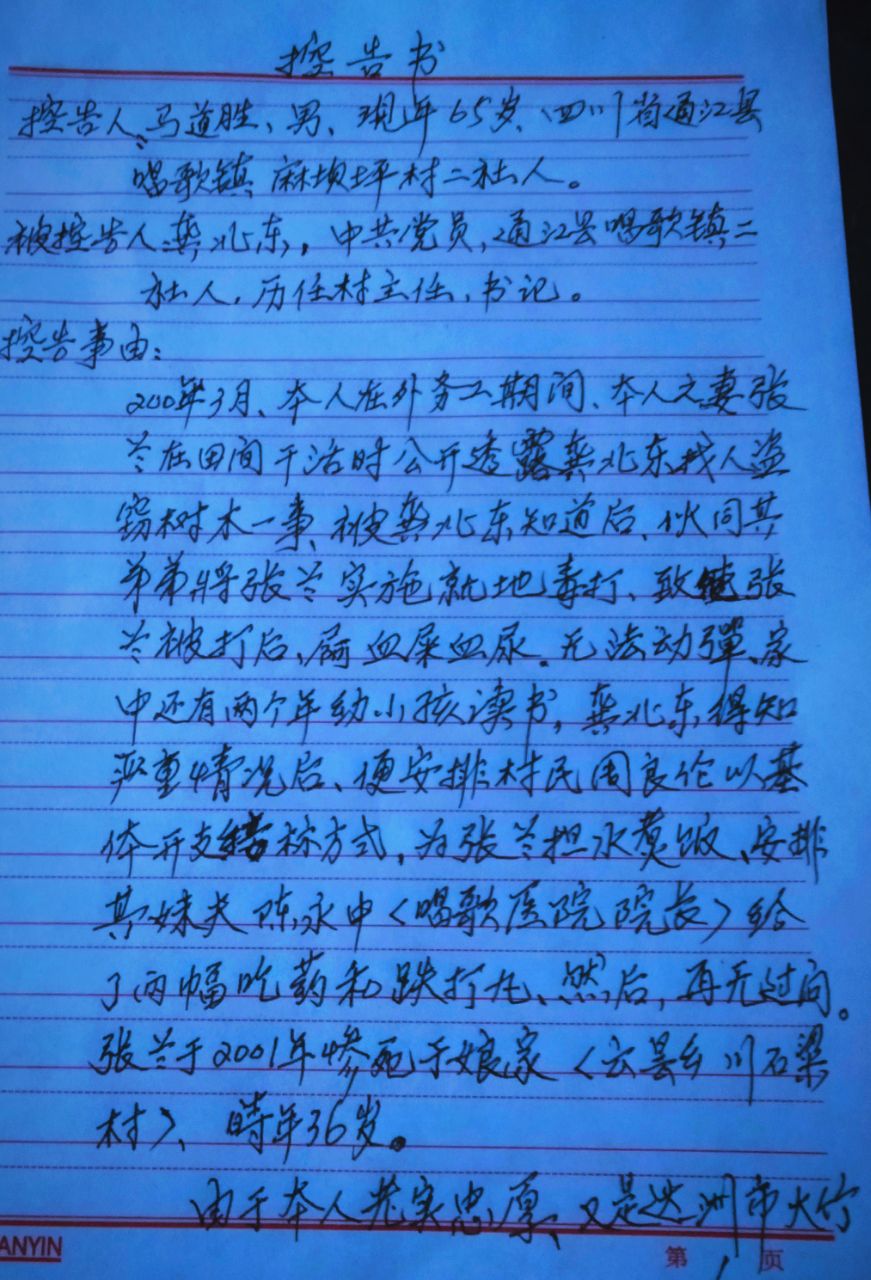 控告书
控告人、马道胜、男、现年65岁、四川省通江县
唱歌镇麻坝坪村二社人。
被控告人龚兆东，中共党员，通江县唱歌镇二
社人，历任村主任、书记。
控告事由：
200年3月、本人在外务工期间、本人之妻张
兰在田间干活时公开透露龚兆东找人盗
窃树木一事、被龚兆东知道后、伙同其
弟弟将张兰实施就地毒打、致使张
兰被打后、屙血屎血尿。无法动彈、家
中还有两个年幼小孩读书，龚兆东得知
严重情况后、便安排村民周良伦以基
体开支 方式，为张兰担水煮饭、安排
其妹夫陈永中〈唱歌医院院长〉给
了两幅吃药和跌打丸、然后，再无过问。
张兰于2001年惨死于娘家〈云昙乡川石梁
村〉、時年36岁。
由于本人老实忠厚、又是达洲市大竹
ANYIN
第1页